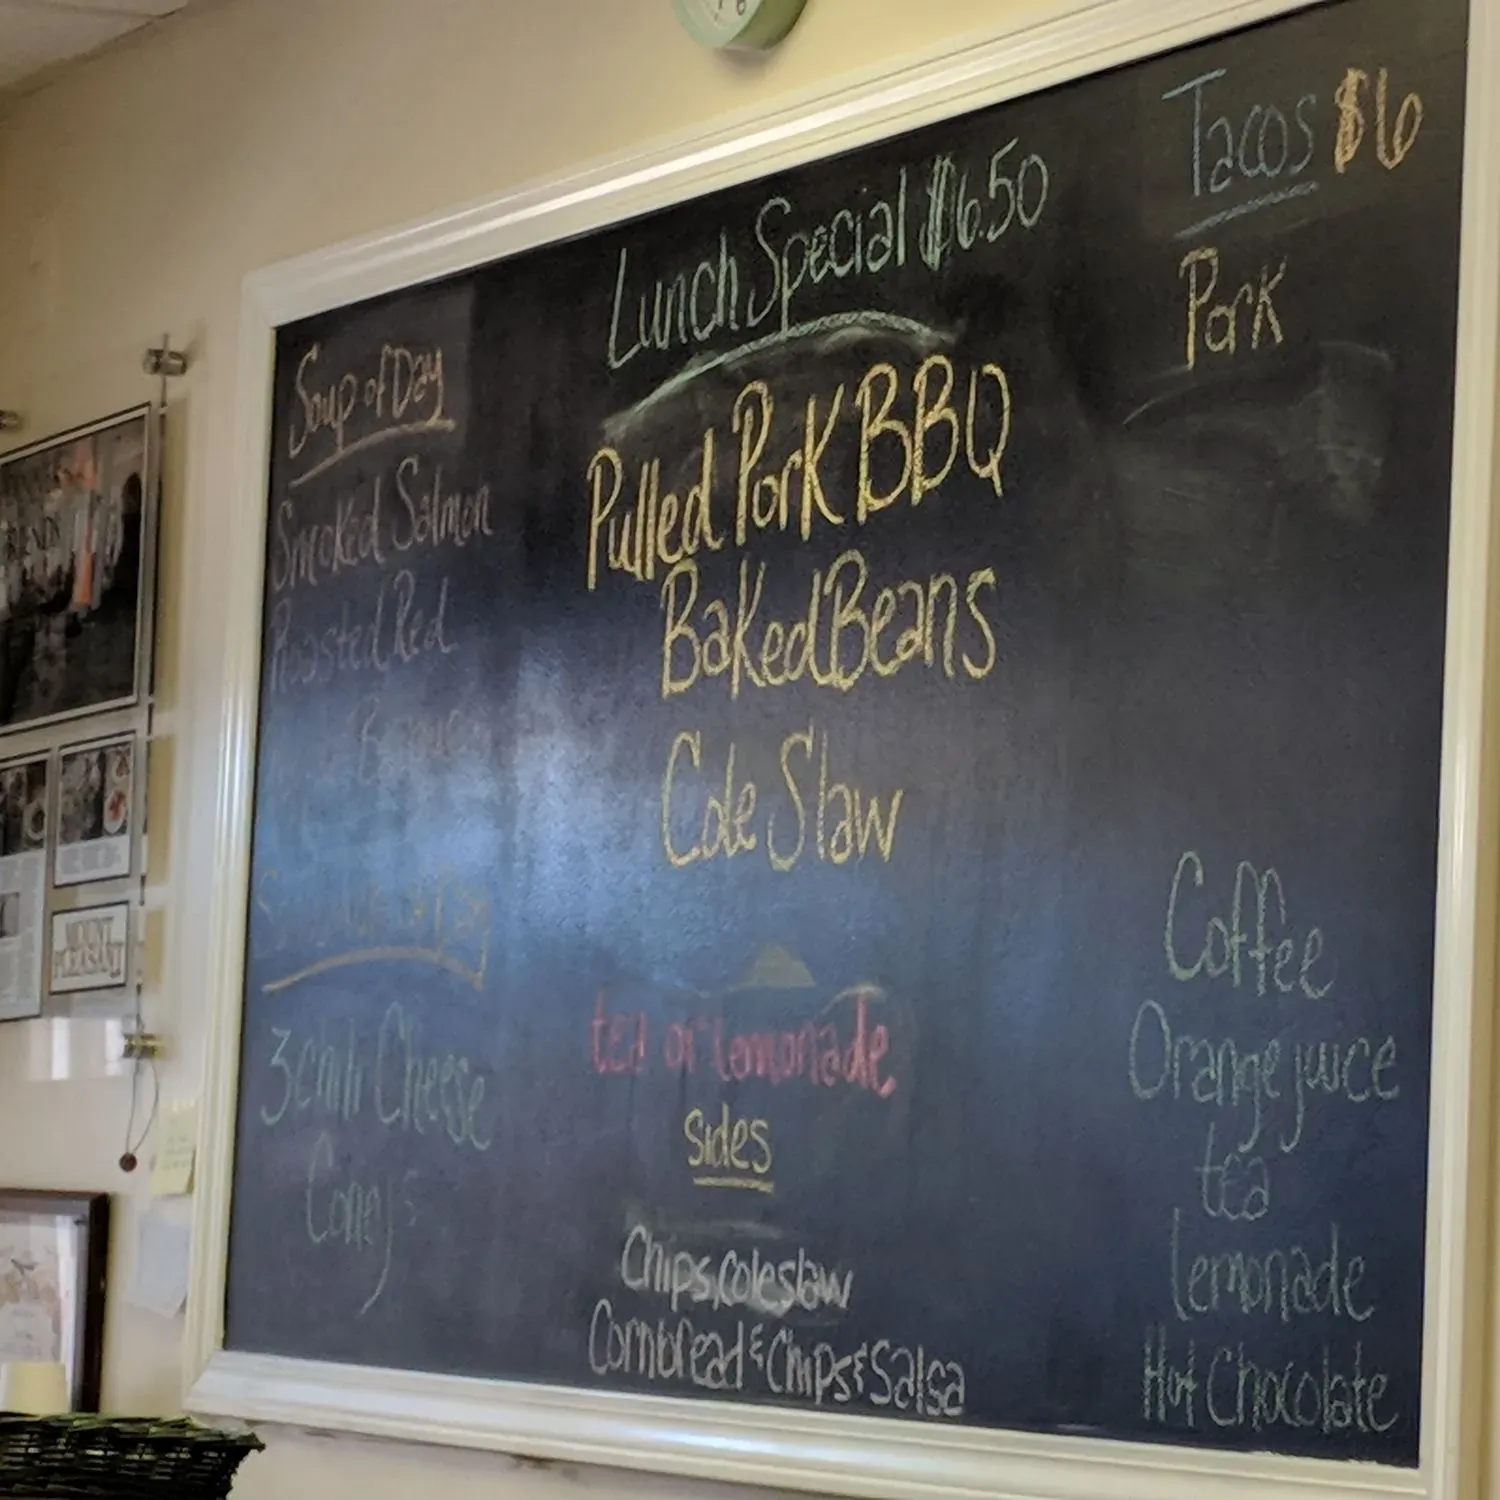 Soup of Day
Smoked Salmon
Roasted Red
Bisque
3 Chili Cheese
Coney's
Lunch Special $6.50
Pulled Pork BBQ
Baked Beans
Cole Slaw
tea or lemonade
Sides
Chips, coleslaw
Cornbread & Chips & Salsa
Tacos $6
Pork
Coffee
Orange juice
tea
lemonade
Hot Chocolate
MOUNT
PLEASANT